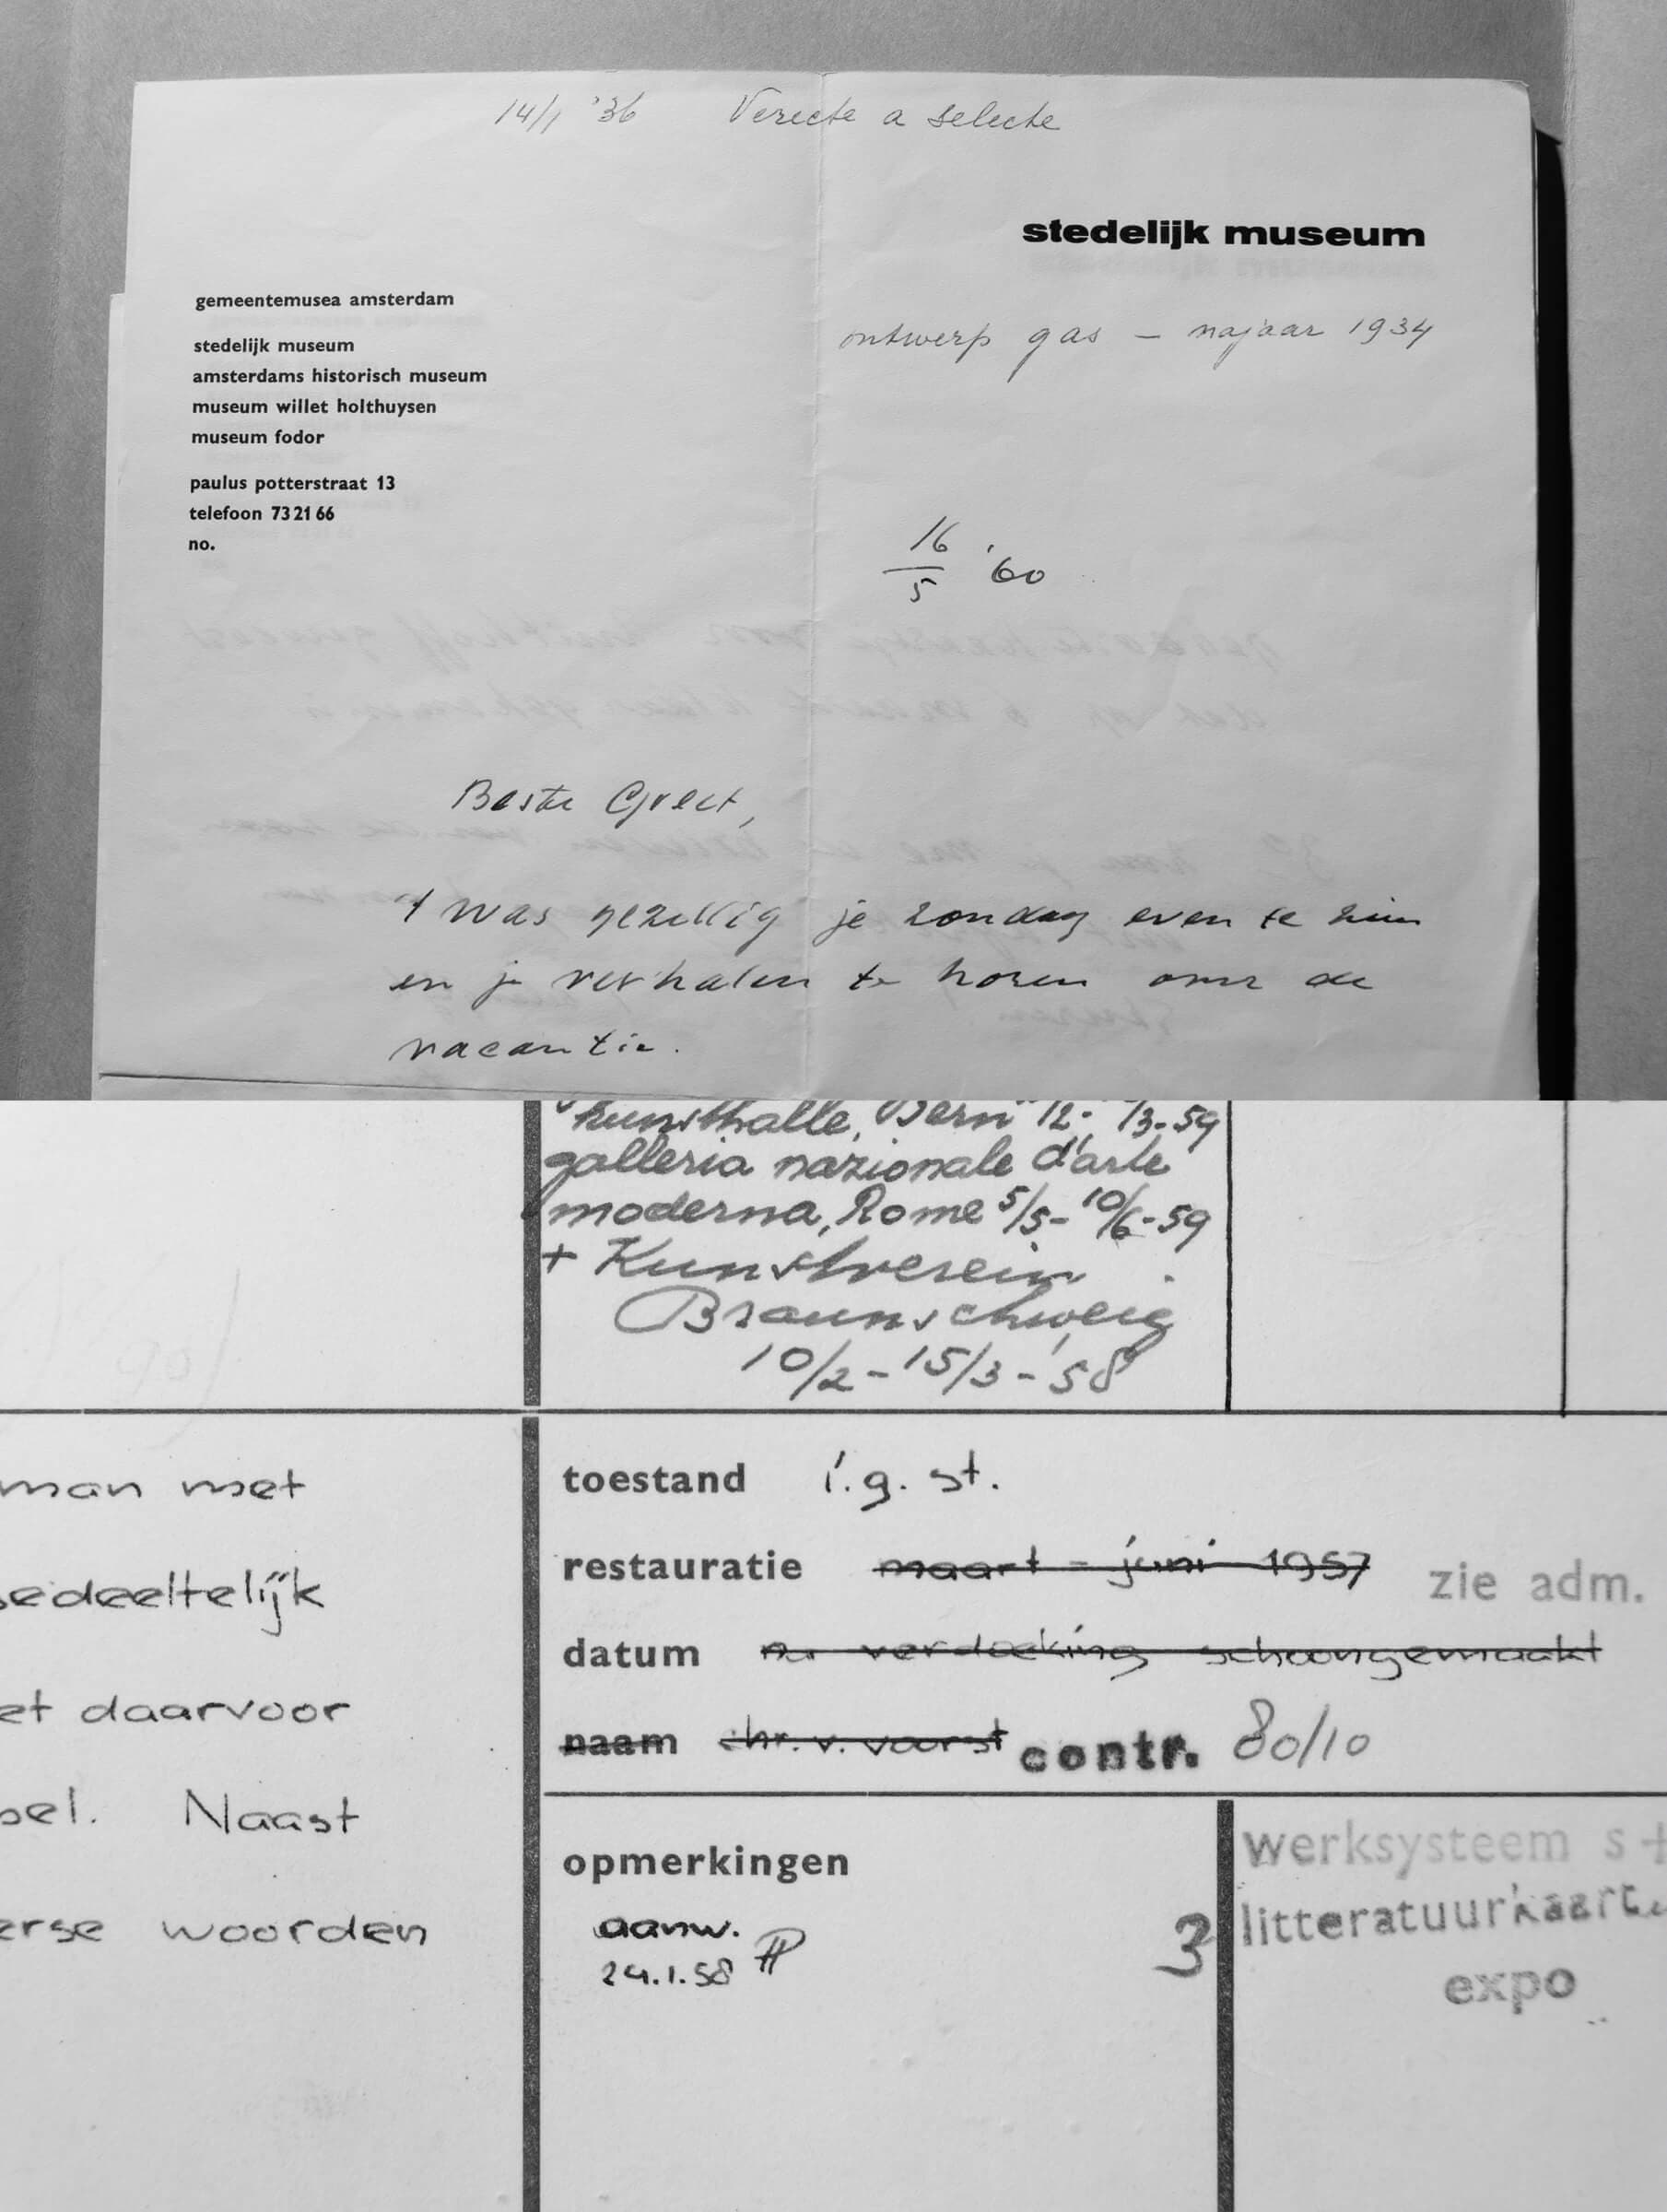 14/1 '36 Verecte a selecte
stedelijk museum
gemeentemusea amsterdam
stedelijk museum
amsterdams historisch museum
museum willet holthuysen
museum fodor
paulus potterstraat 13
telefoon 73 21 66
no.
ontwerp gas – najaar 1934
16/5 '60
Beste Greet,
't Was gezellig je zondag even te zien
en je verhalen te horen over de
vacantie.
kunsthalle, Bern /2- /3-59
galleria nazionale d'arte
moderna, Rome 5/5-10/6-59
+ Kunstverein
Braunschweig
10/2-15/3-'58
man met
edeeltelijk
et daarvoor
el. Naast
erse woorden
toestand i.g. st.
restauratie maart – juni 1957 zie adm.
datum verdoeking schoongemaakt
naam chr. v. voorst contr. 80/10
opmerkingen
aanw.
24.1.58
3
werksysteem s+
litteratuurkaart
expo